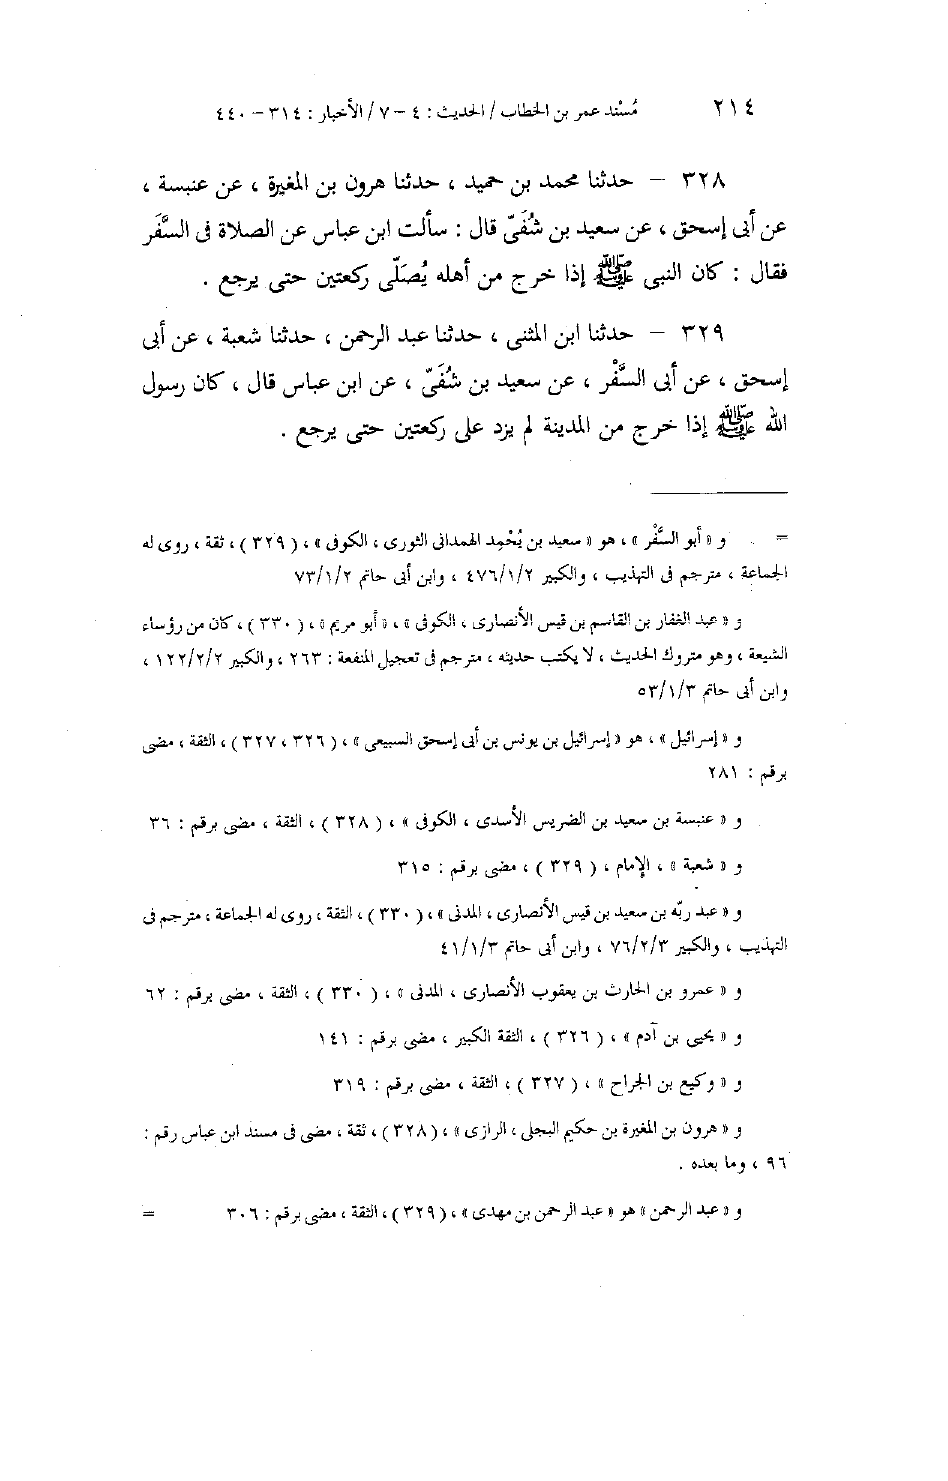 ٢١٤ مُسْند عمر بن الخطاب / الحديث : ٤ – ٧ / الأخبار : ٣١٤ – ٤٤٠
٣٢٨ – حدثنا محمد بن حميد ، حدثنا هرون بن المغيرة ، عن عنبسة ،
عن أبى إسحق ، عن سعيد بن شُفَىّ قال : سألت ابن عباس عن الصلاة فى السَّفَر
فقال : كان النبى ﷺ إذا خرج من أهله يُصَلّى ركعتين حتى يرجع .
٣٢٩ – حدثنا ابن المثنى ، حدثنا عبد الرحمن ، حدثنا شعبة ، عن أبى
إسحق ، عن أبى السَّفْر ، عن سعيد بن شُفَىّ ، عن ابن عباس قال ، كان رسول
الله ﷺ إذا خرج من المدينة لم يزد على ركعتين حتى يرجع .
= و « أبو السَّفْر » ، هو « سعيد بن يُحْمِد الهمدانى الثورى ، الكوفى » ، ( ٣٢٩ ) ، ثقة ، روى له
الجماعة ، مترجم فى التهذيب ، والكبير ٤٧٦/١/٢ ، وابن أبى حاتم ٧٣/١/٢
و « عبد الغفار بن القاسم بن قيس الأنصارى ، الكوفى » ، « أبو مريم » ، ( ٣٣٠ ) ، كان من رؤساء
الشيعة ، وهو متروك الحديث ، لا يكتب حديثه ، مترجم فى تعجيل المنفعة : ٢٦٣ ، والكبير ١٢٢/٢/٢ ،
وابن أبى حاتم ٥٣/١/٣
و « إسرائيل » ، هو « إسرائيل بن يونس بن أبى إسحق السبيعى » ، ( ٣٢٦ ، ٣٢٧ ) ، الثقة ، مضى
برقم : ٢٨١
و « عنبسة بن سعيد بن الضريس الأسدى ، الكوفى » ، ( ٣٢٨ ) ، الثقة ، مضى برقم : ٣٦
و « شعبة » ، الإمام ، ( ٣٢٩ ) ، مضى برقم : ٣١٥
و « عبد ربّه بن سعيد بن قيس الأنصارى ، المدنى » ، ( ٣٣٠ ) ، الثقة ، روى له الجماعة ، مترجم فى
التهذيب ، والكبير ٧٦/٢/٣ ، وابن أبى حاتم ٤١/١/٣
و « عمرو بن الحارث بن يعقوب الأنصارى ، المدنى » ، ( ٣٣٠ ) ، الثقة ، مضى برقم : ٦٢
و « يحيى بن آدم » ، ( ٣٢٦ ) ، الثقة الكبير ، مضى برقم : ١٤١
و « وكيع بن الجراح » ، ( ٣٢٧ ) ، الثقة ، مضى برقم : ٣١٩
و « هرون بن المغيرة بن حكيم البجلى ، الرازى » ، ( ٣٢٨ ) ، ثقة ، مضى فى مسند ابن عباس رقم :
٩٦ ، وما بعده .
و « عبد الرحمن » هو « عبد الرحمن بن مهدى » ، ( ٣٢٩ ) ، الثقة ، مضى برقم : ٣٠٦ =